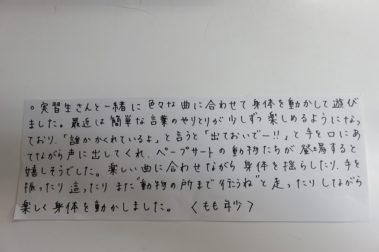 。実習生さんと一緒に色々な曲に合わせて身体を動かして遊び
ました。最近は簡単な言葉のやりとりが少しずつ楽しめるようになっ
ており、「誰かかくれているよ」と言うと「出ておいでー!!」と手を口にあ
てながら声に出してくれ、ペープサートの動物たちが登場すると
嬉しそうでした。楽しい曲に合わせながら身体を揺らしたり、手を
振ったり這ったりまた"動物の所まで行こうね"と走ったりしながら
楽しく身体を動かしました。〈もも組〉